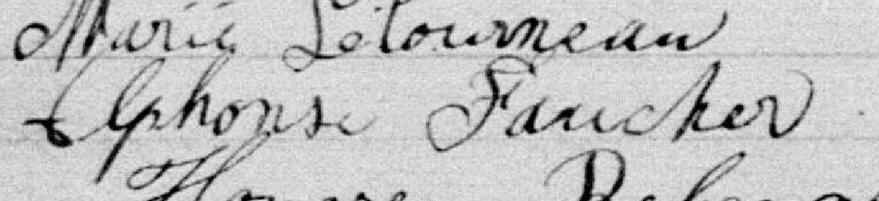 Marie Létourneau
Alphonse Faucher